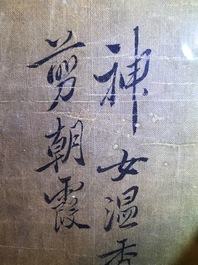 神女温香
剪朝霞